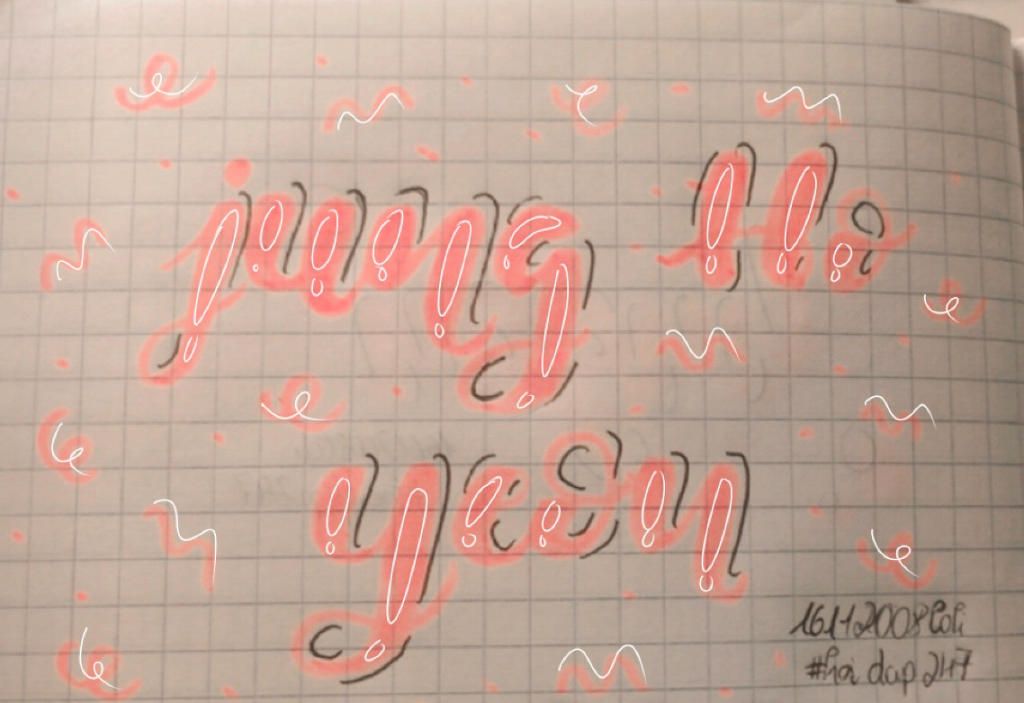 jung Ho
yeon
16112008Loli
#hoi dap 247